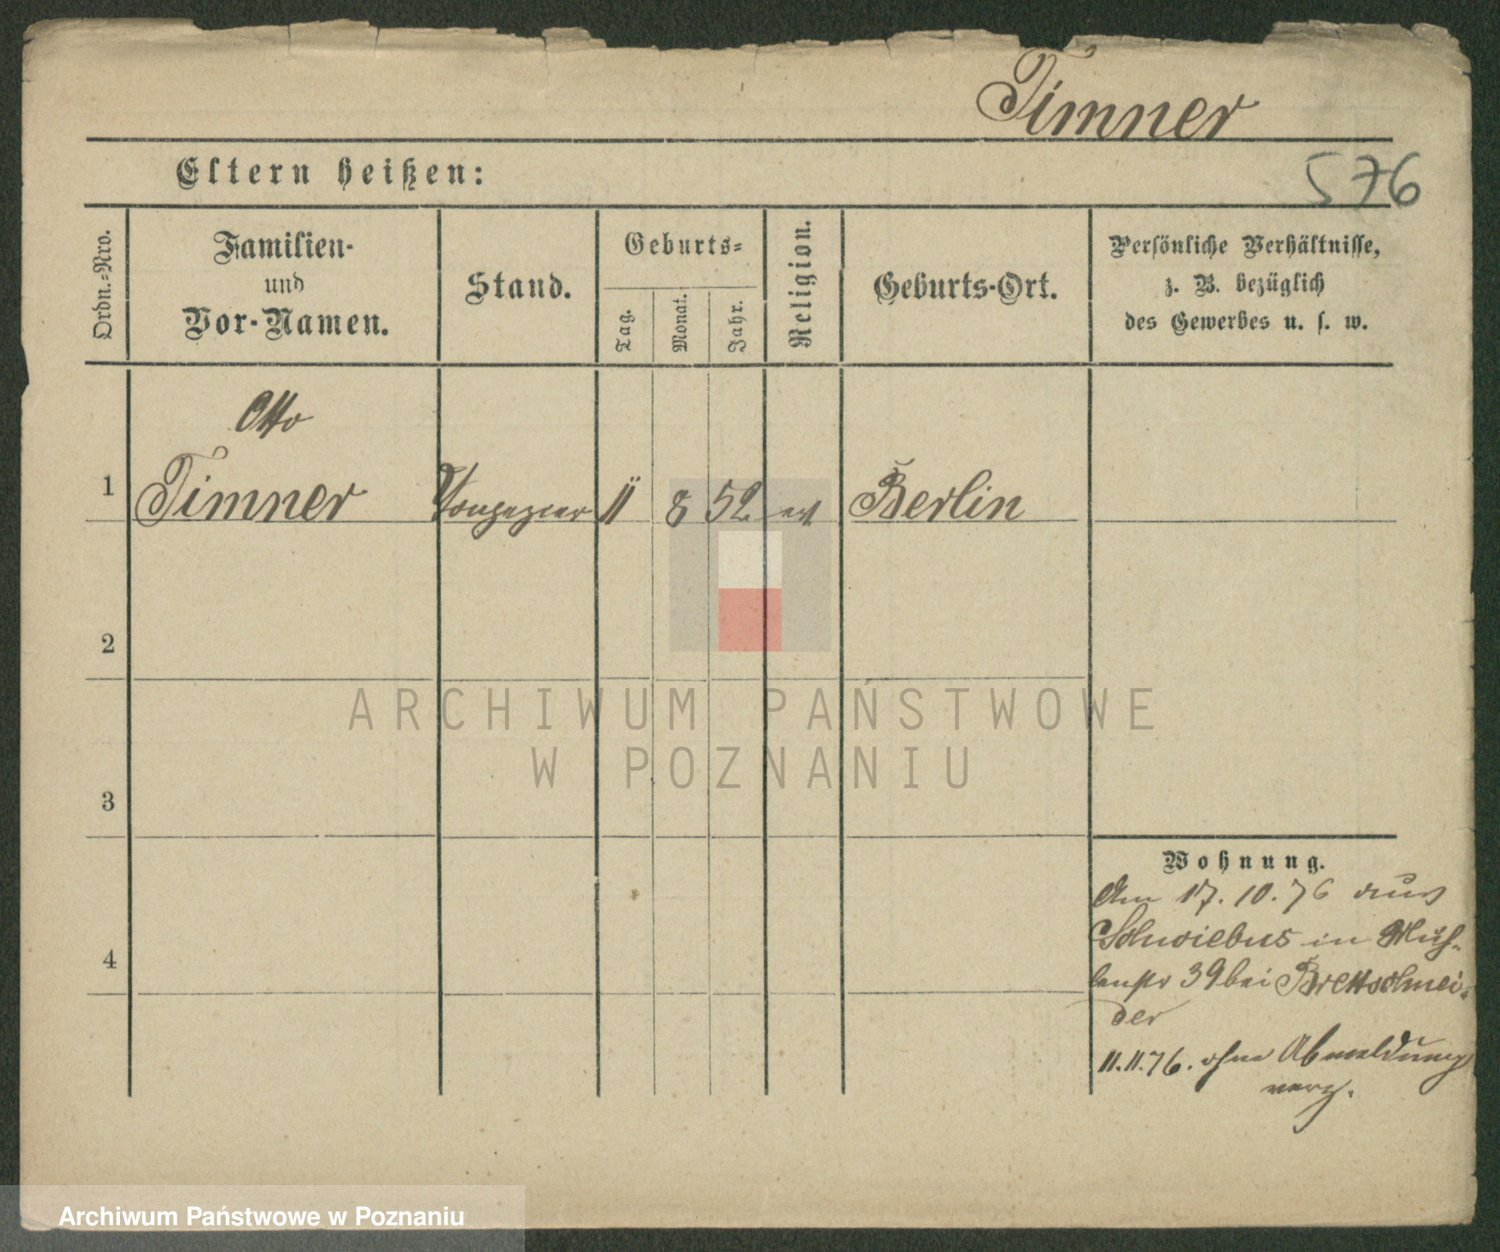 Timner
576
Eltern heißen:
Ordn.-Nro.
Familien-
und
Vor-Namen.
Stand.
Geburts-
Tag.
Monat.
Jahr.
Religion.
Geburts-Ort.
Persönliche Verhältnisse,
z. B. bezüglich
des Gewerbes u. s. w.
Otto
1 Timner 11 8 52 Berlin
2
ARCHIWUM PAŃSTWOWE
W POZNANIU
3
Wohnung.
Am 17. 10. 76 aus
Schwiebus in Müh-
lenstr 39 bei Brettschnei-
der
4
11.11.76. ohne Abmeldung
verz.
Archiwum Państwowe w Poznaniu